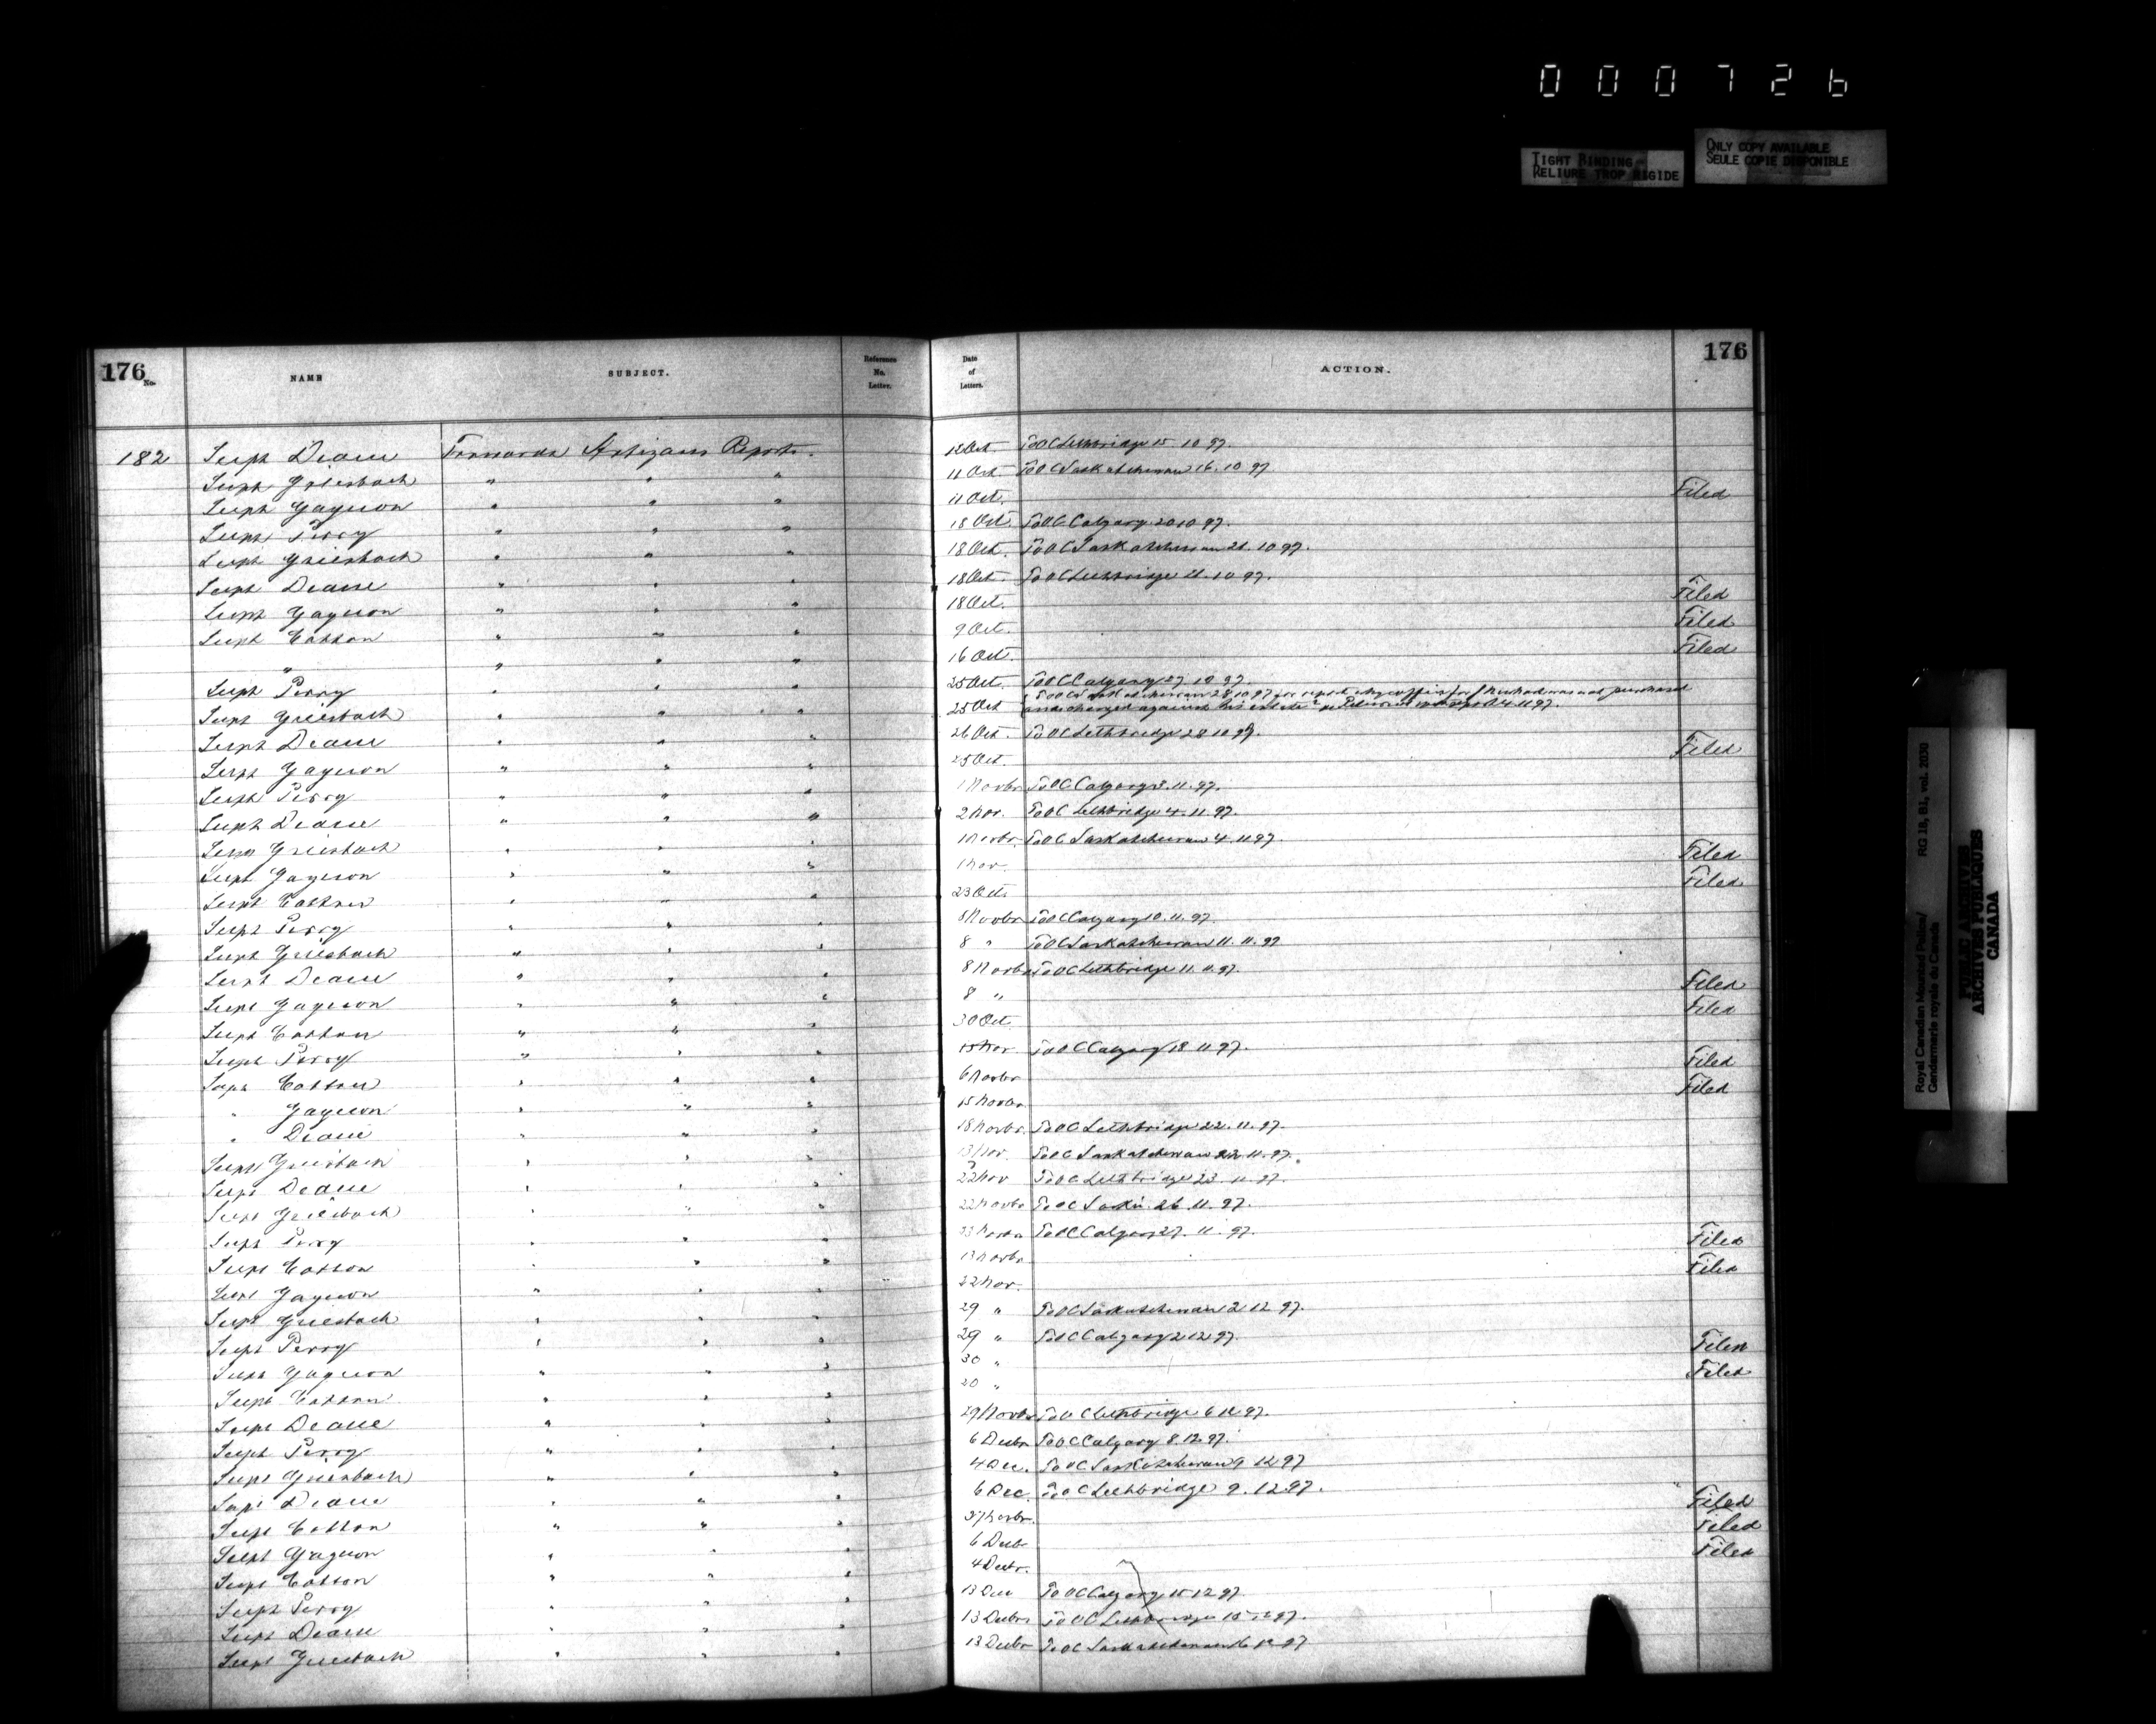 000726
TIGHT BINDING
RELIURE TROP RIGIDE
ONLY COPY AVAILABLE
SEULE COPIE DISPONIBLE
176 No. NAME SUBJECT. Reference No. Letter. Date of Letters. ACTION. 176
182 Supt Deane Forwards Artizans Reports. 12 Oct. To OC Lethbridge 15.10.97.
Supt Griesbach " " " 11 Oct. To OC Saskatchewan 16.10.97
Supt Gagnon " " " 11 Oct. Filed
Supt Perry " " " 18 Oct. To OC Calgary 20.10.97.
Supt Griesbach " " " 18 Oct. To OC Saskatchewan 21.10.97.
Supt Deane " " " 18 Oct. To OC Lethbridge 21.10.97.
Supt Gagnon " " " 18 Oct. Filed
Supt Cotton " " " 9 Oct. Filed
" " " " 16 Oct. Filed
Supt Perry " " " 25 Oct. To OC Calgary 27.10.97.
Supt Griesbach " " " 25 Oct To OC Saskatchewan 28.10.97 for report why coffin for was not purchased
and charged against his estate 4.11.97.
Supt Deane " " " 26 Oct. To OC Lethbridge 28.10.97.
Supt Gagnon " " " 25 Oct. Filed
Supt Perry " " " 1 Novbr To OC Calgary 3.11.97.
Supt Deane " " " 2 Nov. To OC Lethbridge 4.11.97.
Supt Griesbach " " " 1 Novbr. To OC Saskatchewan 4.11.97.
Supt Gagnon " " " 1 Nov. Filed
Supt Cotton " " " 23 Oct. Filed
Supt Perry " " " 8 Novbr To OC Calgary 10.11.97.
Supt Griesbach " " " 8 " To OC Saskatchewan 11.11.97
Supt Deane " " " 8 Novbr To OC Lethbridge 11.11.97.
Supt Gagnon " " " 8 " Filed
Supt Cotton " " " 30 Oct. Filed
Supt Perry " " " 15 Nov To OC Calgary 18.11.97.
Supt Cotton " " " 6 Novbr Filed
" Gagnon " " " 15 Novbr. Filed
" Deane " " " 18 Novbr. To OC Lethbridge 22.11.97.
Supt Griesbach " " " Nov. To OC Saskatchewan 22.11.97.
Supt Deane " " " 22 Nov To OC Lethbridge 23.11.97.
Supt Griesbach " " " 22 Novbr To OC Sask'n. 26.11.97.
Supt Perry " " " Novbr To OC Calgary 27.11.97.
Supt Cotton " " " 13 Novbr Filed
Supt Gagnon " " " 22 Nov. Filed
Supt Griesbach " " " 29 " To OC Saskatchewan 2.12.97.
Supt Perry " " " 29 " To OC Calgary 2.12.97.
Supt Gagnon " " " 30 " Filed
Supt Cotton " " " 20 " Filed
Supt Deane " " " 29 Novbr To OC Lethbridge 6.12.97.
Supt Perry " " " 6 Decbr To OC Calgary 8.12.97.
Supt Griesbach " " " 4 Dec. To OC Saskatchewan 9.12.97
Supt Deane " " " 6 Dec. To OC Lethbridge 9.12.97.
Supt Cotton " " " 27 Novbr. Filed
Supt Gagnon " " " 6 Decbr Filed
Supt Cotton " " " 4 Decbr. Filed
Supt Perry " " " 13 Dec To OC Calgary 15.12.97.
Supt Deane " " " 13 Decbr To OC Lethbridge 15.12.97.
Supt Griesbach " " " 13 Decbr To OC Saskatchewan 16.12.97
Royal Canadian Mounted Police/
Gendarmerie royale du Canada
RG 18, B1, vol. 2030
PUBLIC ARCHIVES
ARCHIVES PUBLIQUES
CANADA